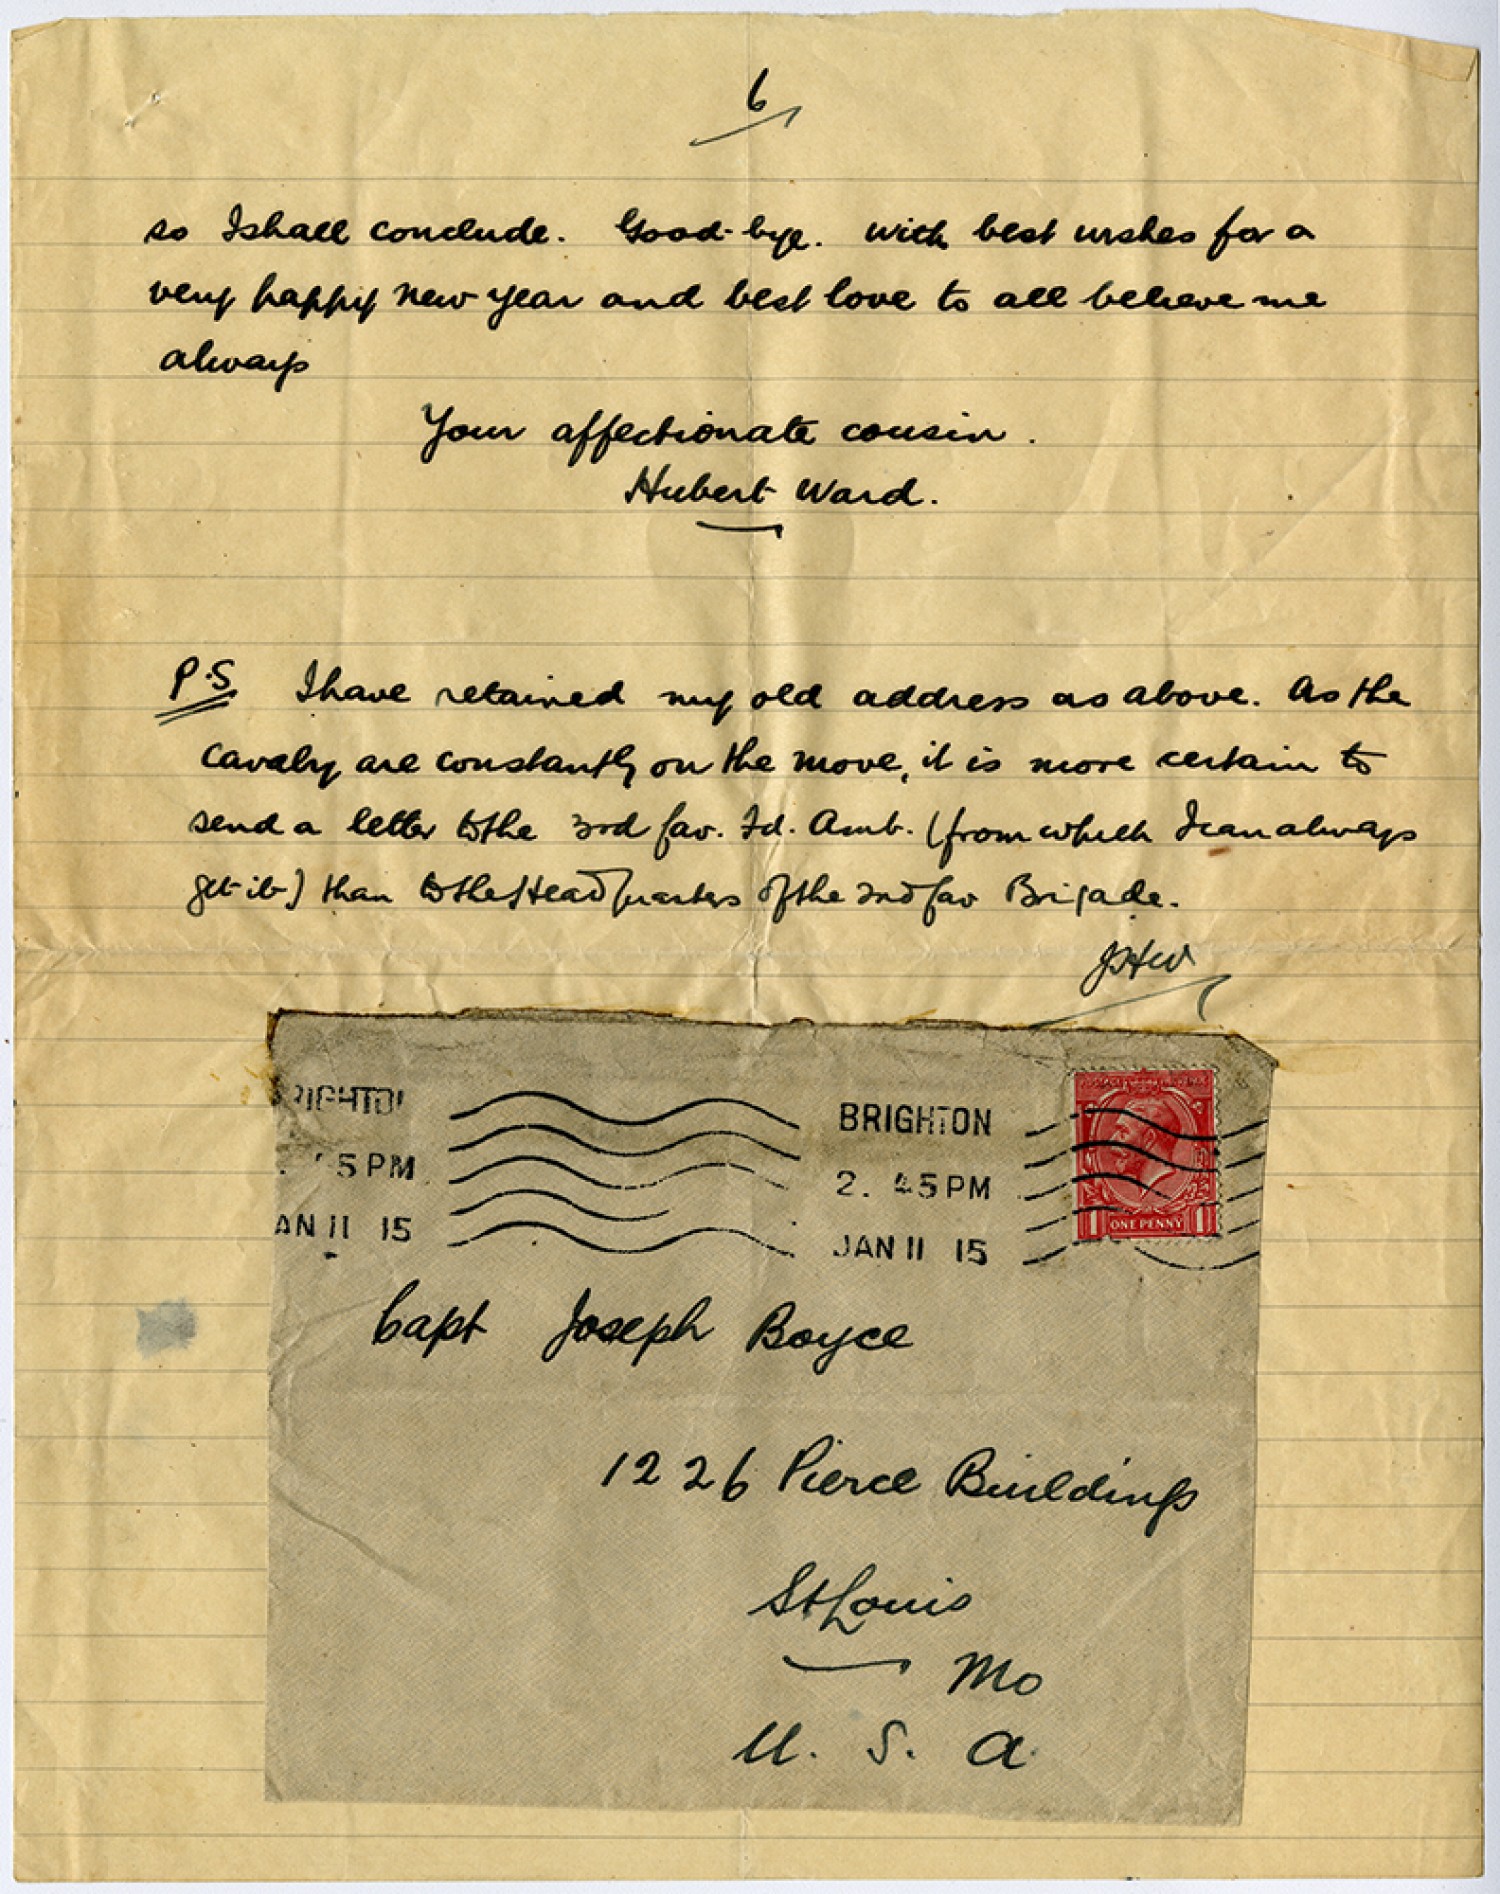 6
so I shall conclude. Good-bye. with best wishes for a
very happy new year and best love to all believe me
always
Your affectionate cousin.
Hubert Ward.
P.S I have retained my old address as above. As the
Cavalry are constantly on the move, it is more certain to
send a letter to the 3rd Cav. Fd. Amb. (from which I can always
get it) than to the Head Quarters of the 2nd Cav Brigade.
JHW
RIGHTON
5 PM
AN 11 15
BRIGHTON
2. 45 PM
JAN 11 15
ONE PENNY
1 1
Capt Joseph Boyce
1226 Pierce Buildings
St Louis
Mo
U. S. A.